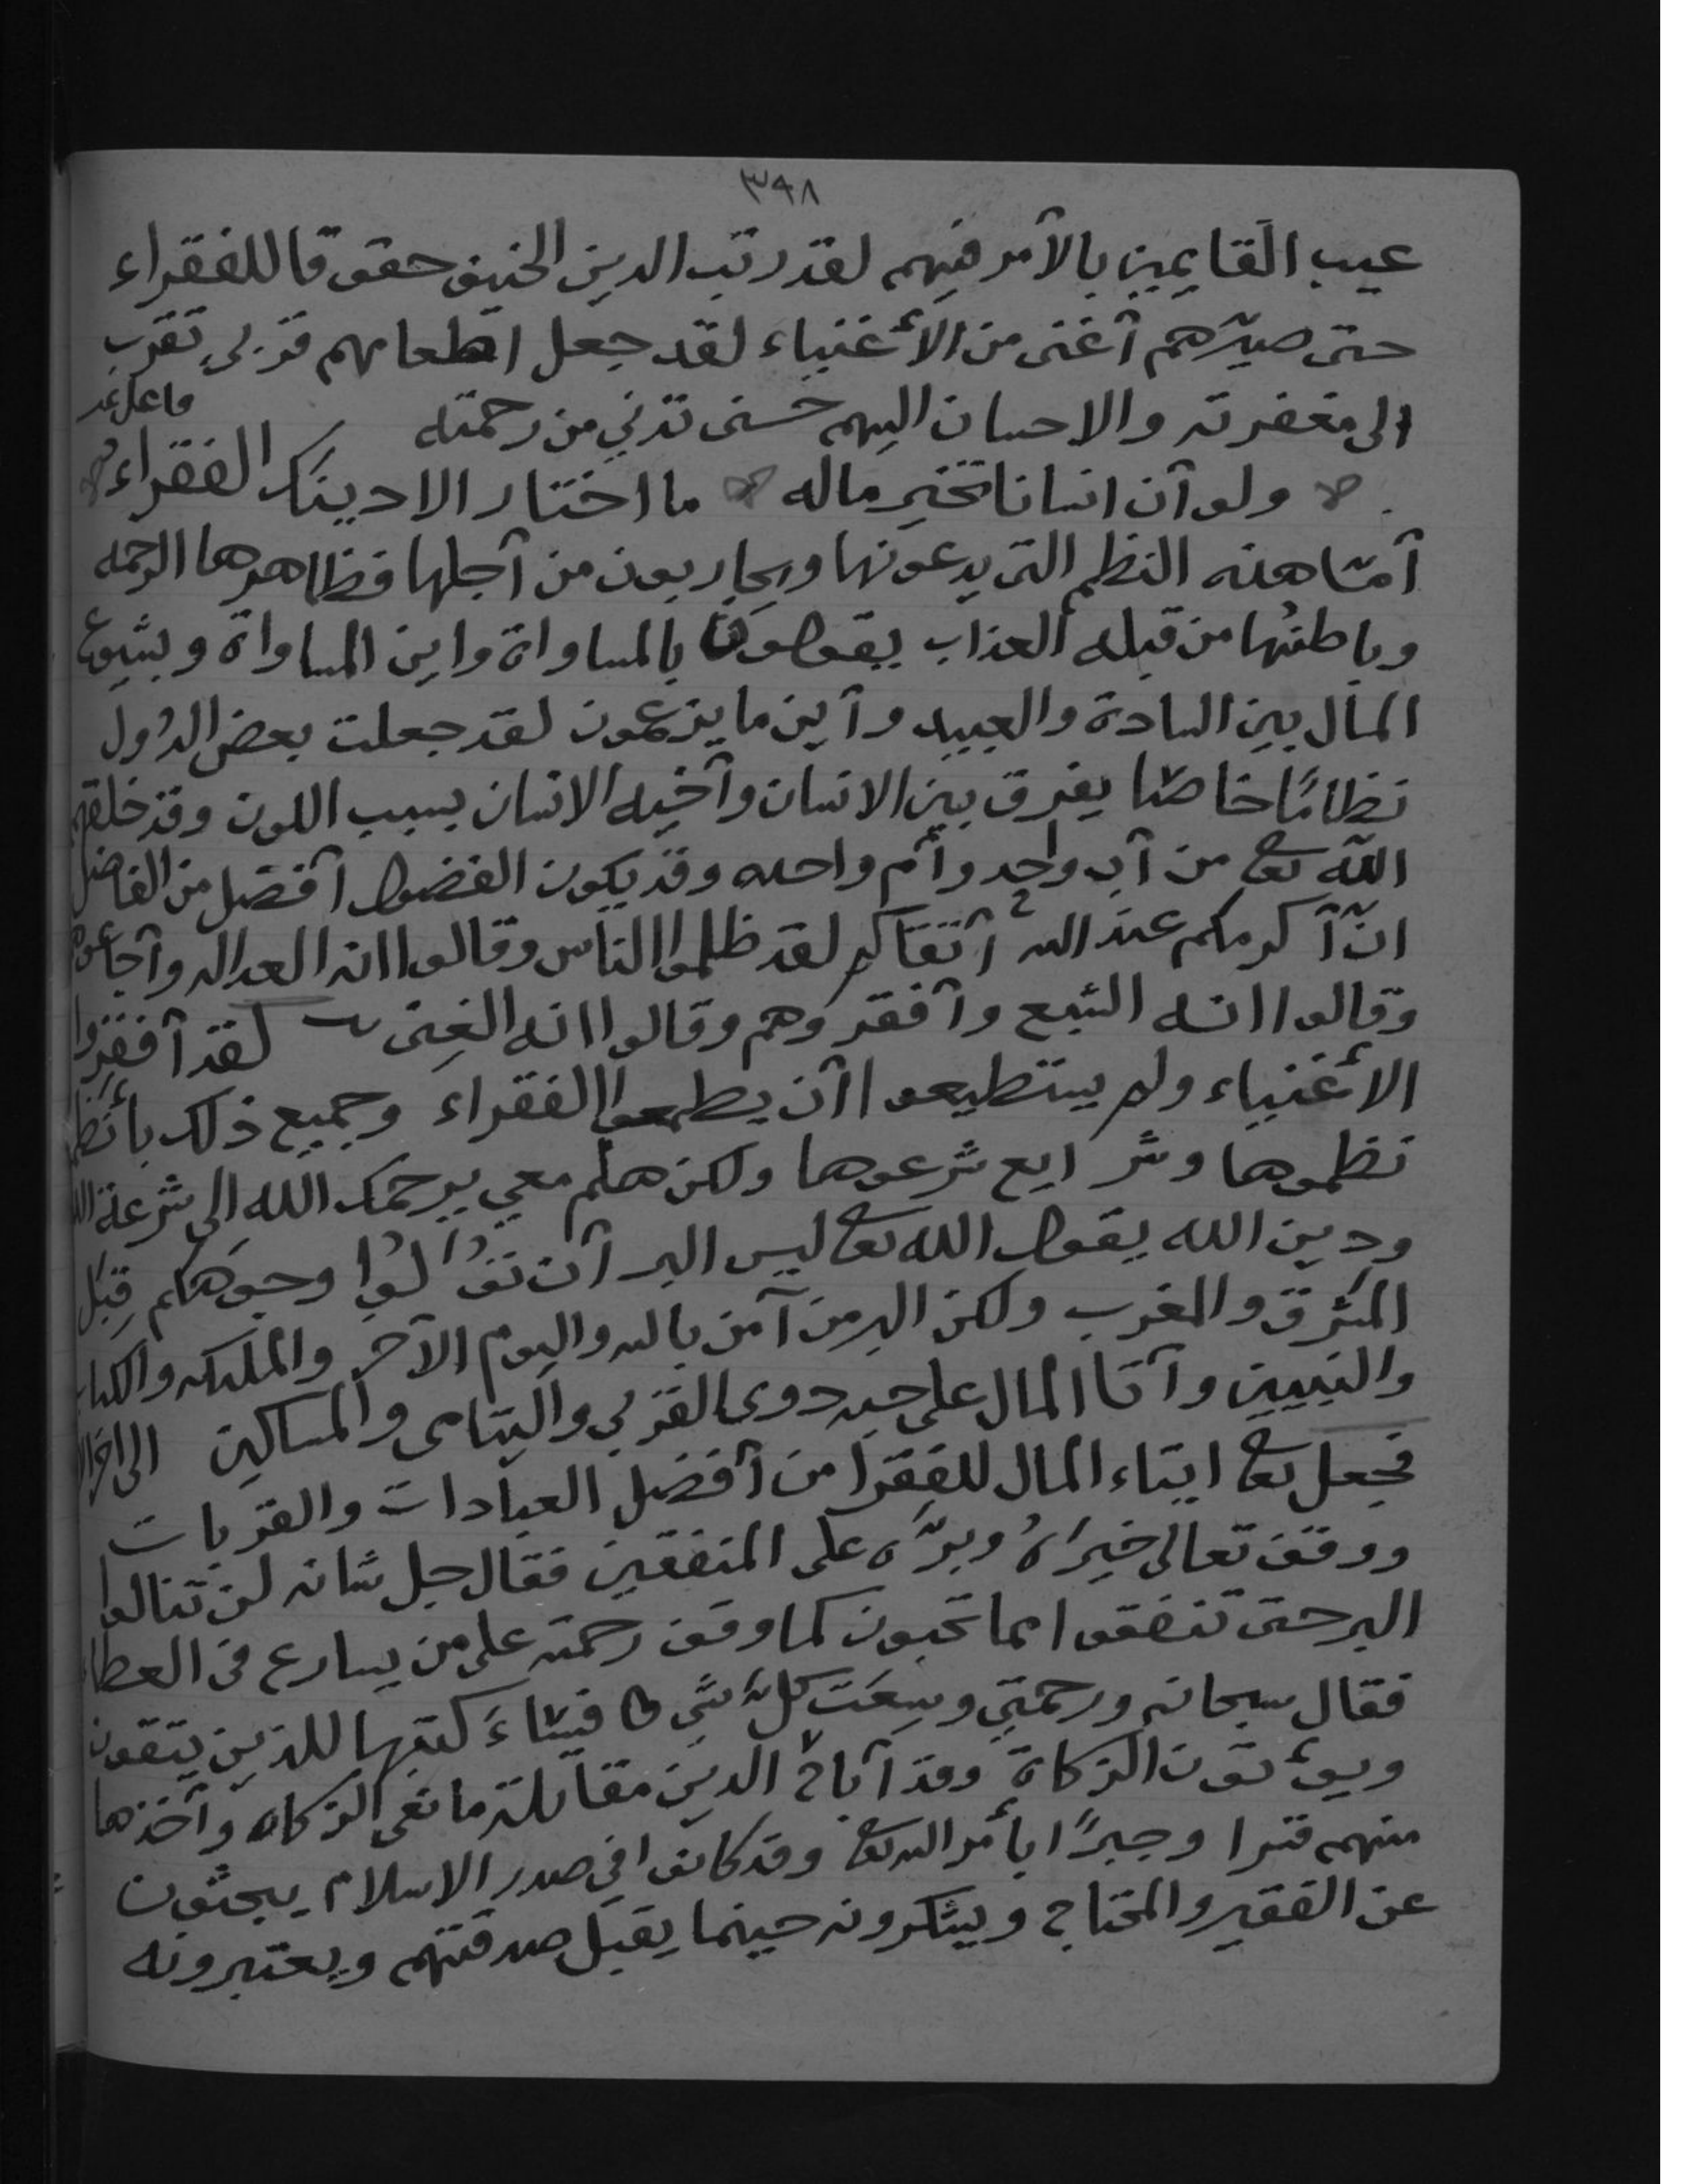 ٣٩٨
عيب القايمين بالأمر فيهم لقد رتب الدين الحنيف حقوقا للفقراء
حتى صيّرهم أغنى من الأغنياء لقد جعل اطعامهم قربى تقرب
الى مغفرته والاحسان اليهم حسنى تدني من رحمته
ولو أن انسانا تخير ماله ما اختار الا دينك الفقراء
أمّا هذه النظم التى يدعونها ويحاربون من أجلها فظاهرها الرحمه
وباطنها من قبله العذاب يقولون بالمساواة واين المساواة وبشيوع
المال بين السادة والعبيد وأين ما يزعمون لقد جعلت بعض الدول
نظامًا خاصّا يفرق بين الانسان وأخيه الانسان بسبب اللون وقد خلقهم
الله تعا من أب واحد وأم واحده وقد يكون المفضول أفضل من الفاضل
انّ أكرمكم عند الله أتقاكم لقد ظلموا الناس وقالوا انه العداله وأجاعوهم
وقالوا انه الشبع وأفقروهم وقالوا انه الغنى لقد أفقروا
الأغنياء ولم يستطيعوا أن يطعموا الفقراء وجميع ذلك بأنظم
نظموها وشرايع شرعوها ولكن هلم معي يرحمك الله الى شرعة الله
ودين الله يقول الله تعا ليس البر أن تولوا وجوهكم قِبَل
المشرق والمغرب ولكن البر من آمن بالله واليوم الآخر والملئكه والكتاب
والنبيين وآتا المال على حبه ذوى القربى واليتامى والمساكين الى اخر
فجعل تعا ايتاء المال للفقرا من أفضل العبادات والقربات
ووقف تعالى خيرَهُ وبرّه على المنفقين فقال جل شانه لن تنالوا
البر حتى تنفقوا مما تحبون كما وقف رحمته على من يسارع فى العطاء
فقال سبحانه ورحمتي وسِعَت كلّ شي فسَاءَكتبها للذين يتقون
ويؤتون الزكاة وقد أباح الدين مقاتلة مانعى الزكاه وأخذها
منهم قسرا وجبرًا بأمر الله تعا وقد كانوا في صدر الاسلام يبحثون
عن الفقير والمحتاج ويشكرونه حينما يقبل صدقتهم ويعتبرونه